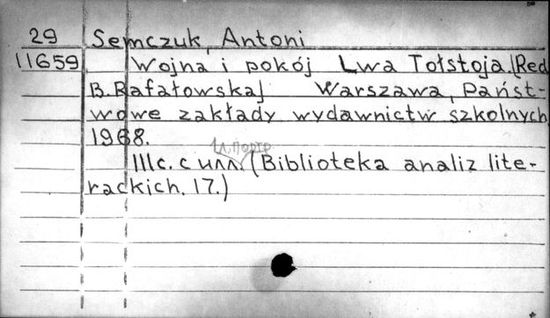 29 Semczuk, Antoni
11659 Wojna i pokój Lwa Tołstoja. [Red
B. Rafałowska] Warszawa, Państ-
wowe zakłady wydawnictw szkolnych
1968.
1 л. портр
111 с. с илл. (Biblioteka analiz lite-
rackich. 17.)